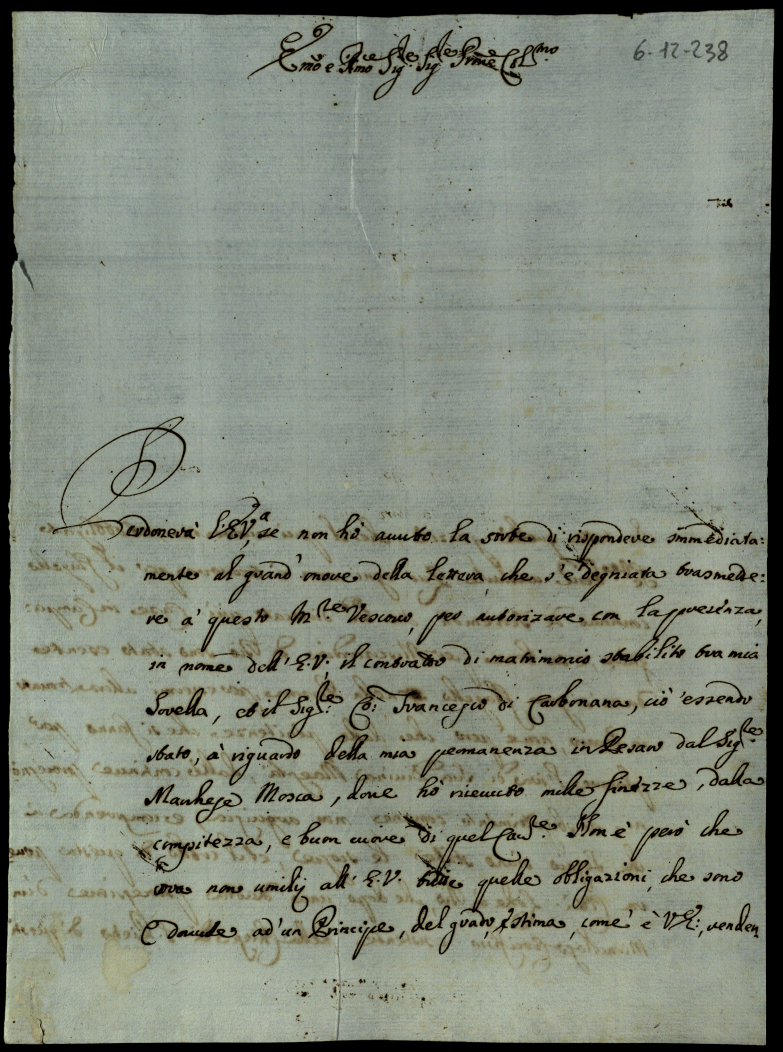 Em͞o e R͞mo Sig.re Sig.re P͞rne Col.mo
6-12-238
Perdonerà l'E.V.a, se non hò avuto la sorte di rispondere immediata:
mente al grand'onore della lettera, che s'è degniata trasmette:
re à questo M.re Vescovo, per autorizare con la presenza,
in nome dell'E:V:, il contratto di matrimonio stabilito tra mia
Sorella, et il Sig.re: Co: Francesco di Carbonana, ciò essendo
stato, à riguardo della mia permanenza in Pesaro dal Sig.re
Marchese Mosca, dove hò ricevuto mille finezze, dalla
compitezza, e buon cuore di quel Cav.re. Non è però che
ora non umilij all'E:V. tutte quelle obligazioni, che sono
dovute ad'un Principe, del grado, e stima, come è V.E:, renden